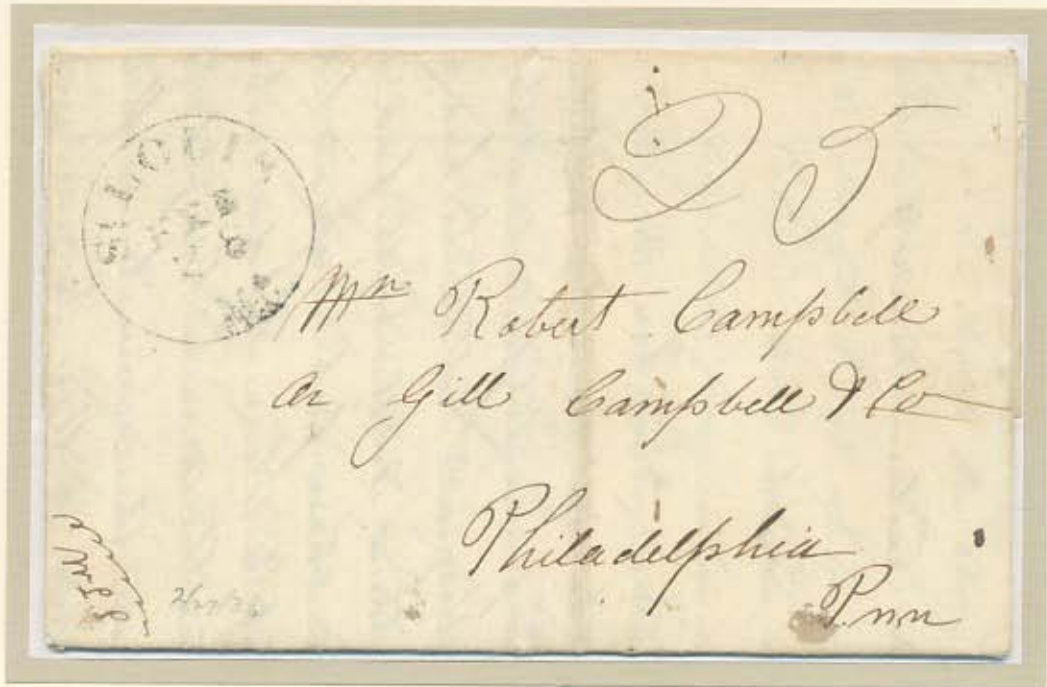 ST LOUIS
25
Mr Robert Campbell
or Gill Campbell & Co
Philadelphia
Penn